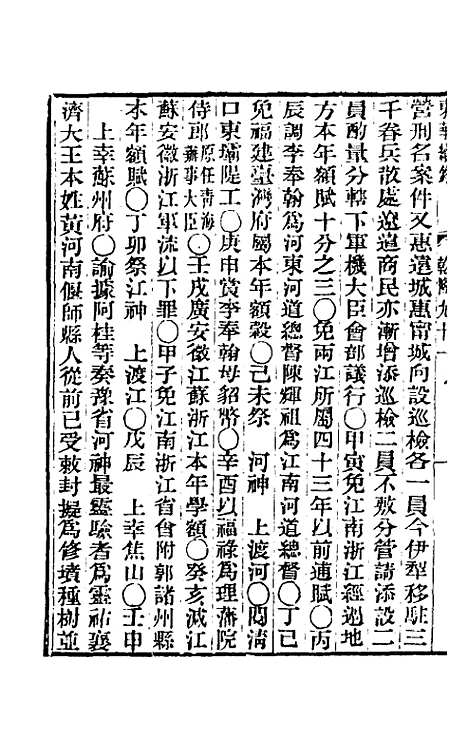 東華續錄 乾隆九十一
營刑名案件又惠遠城惠甯城向設巡檢各一員今伊犂移駐三
千眷兵散處遼遠商民亦漸增添巡檢二員不敷分管請添設二
員酌量分轄下軍機大臣會部議行○甲寅免江南浙江經過地
方本年額賦十分之三○免兩江所屬四十三年以前逋賦○丙
辰調李奉翰爲河東河道總督陳輝祖爲江南河道總督○丁巳
免福建臺灣府屬本年額穀○己未祭 河神 上渡河○閱淸
口東壩隄工○庚申賞李奉翰母貂幣○辛酉以福祿爲理藩院
侍郎原任靑海辦事大臣○壬戌廣安徽江蘇浙江本年學額○癸亥減江
蘇安徽浙江軍流以下罪○甲子免江南浙江省會附郭諸州縣
本年額賦○丁卯祭江神 上渡江○戊辰 上幸焦山○壬申
上幸蘇州府○諭據阿桂等奏豫省河神最靈驗者爲靈祐襄
濟大王本姓黃河南偃師縣人從前已受敕封擬爲修墳種樹並